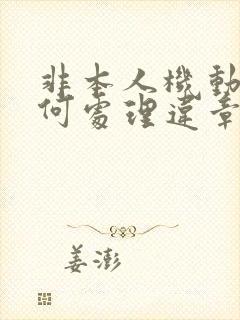 非本人機動
何處理違章
姜澎